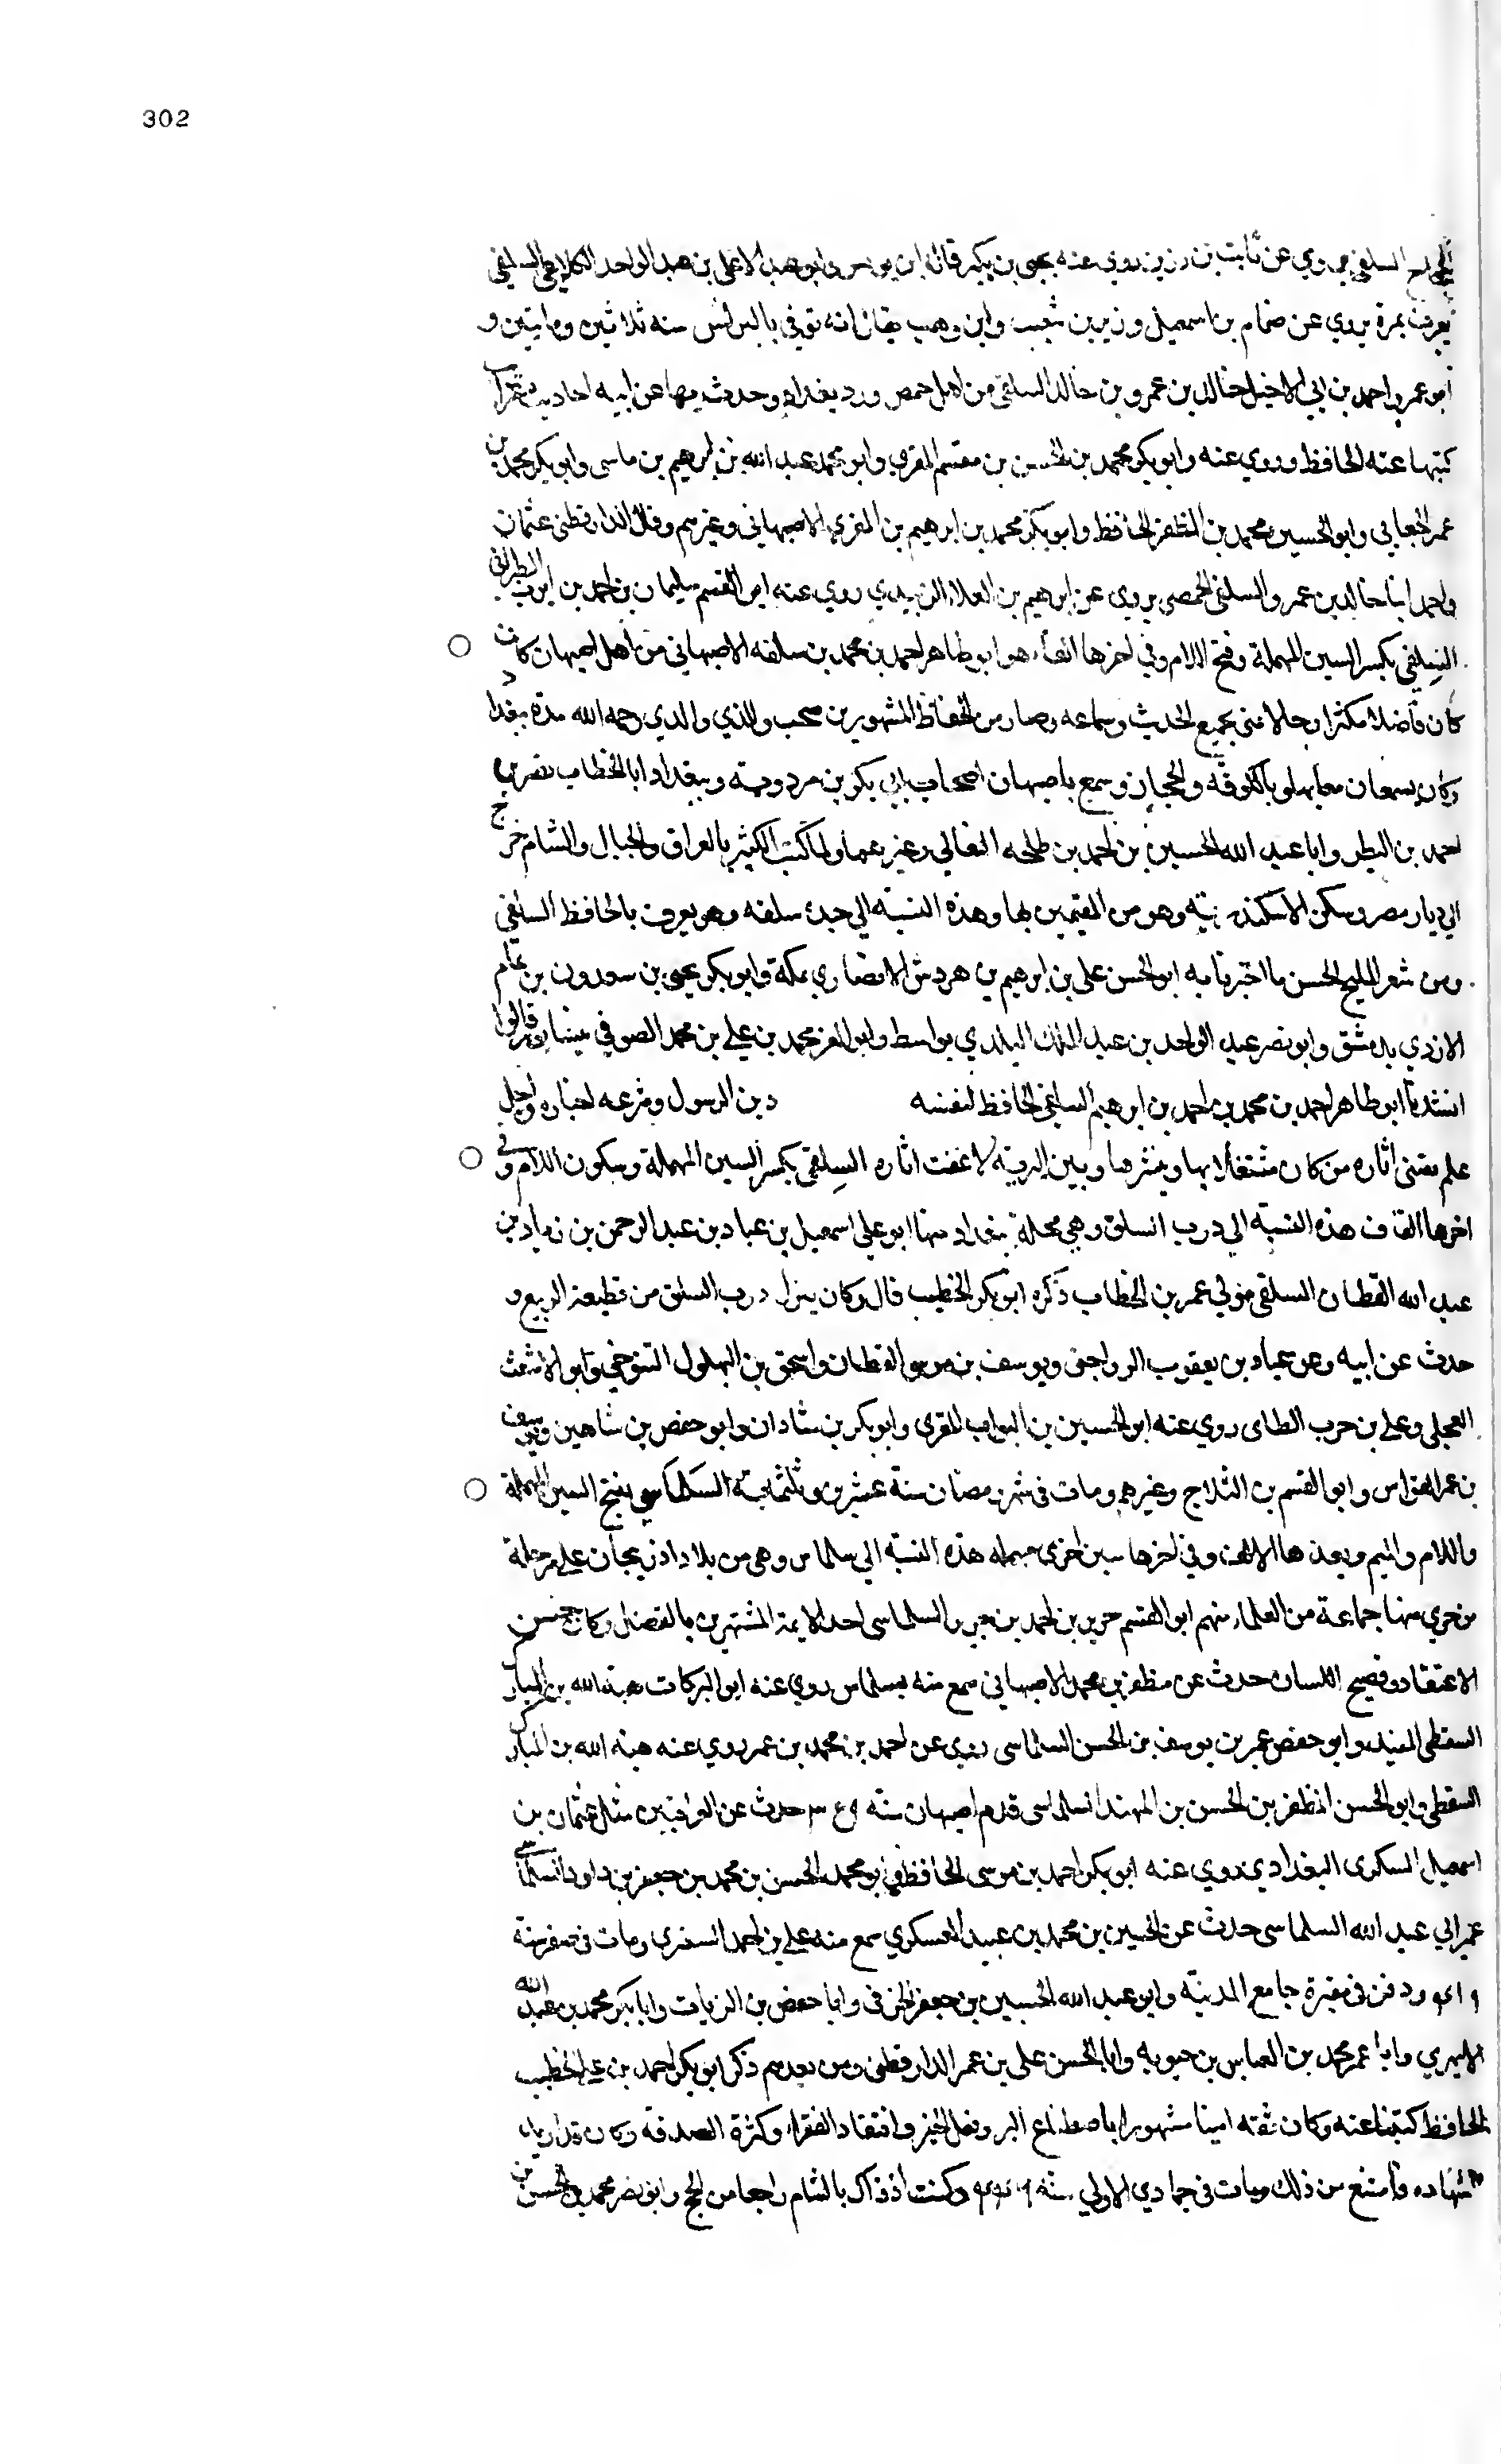 302
السلفي يروي عن ثابت بن رزين روي عنه يحيى بن بكير قاله ابن يونس وابو عبد الاعلى بن عبد الواحد الكلاعي السلفي
يعرف بمرة يروي عن ضمام بن اسمعيل وزين بن شعيب وابن وهب يقال انه توفي بالبرلس سنه ثلاثين ومايتين و
ابو عمر احمد بن ابي الاخيل خالد بن عمرو بن خالد السلفي من اهل حمص ورد بغداد وحدث بها عن ابيه احاديث
كتبها عنه الحافظ وروي عنه وابو بكر محمد بن الحسن بن مقسم المقري وابو محمد عبد الله بن ابرهيم بن ماسى وابو بكر محمد بن
عمر الجعابي وابو الحسين محمد بن المظفر الحافظ وابو بكر محمد بن ابرهيم بن المقري الاصبهاني وغيرهم وقال الدارقطني عثمان
واحمد ابنا خالد بن عمرو السلفي الحمصي يروي عن ابرهيم بن العلاء الزبيدي روي عنه ابو القسم سليمان بن احمد بن ايوب الطبراني
السلفي بكسر السين المهملة وفتح اللام وفي اخرها الفاء هو ابو طاهر احمد بن محمد بن سلفه الاصبهاني من اهل اصبهان كان
كان فاضلا مكثرا رحالا عني بجمع الحديث وسماعه وصار من الحفاظ المشهورين صحب والذي والدي رحمه الله مدة ببغداد
وكان يسمعان معا بها وبالكوفة والحجاز وسمع باصبهان اصحاب ابي بكر بن مردويه وببغداد ابا الخطاب نصر بن
احمد بن البطر وابا عبد الله الحسين بن احمد بن طلحه النعالي وغيرهما ولما كتب الكثير بالعراق والجبال والشام خرج
الي ديار مصر وسكن الاسكندرية وهو من المقيمين بها وهذه النسبه الي جده سلفه وهو يعرف بالحافظ السلفي
ومن شعر المليح الحسن ما اخبرنا به ابو الحسن علي بن ابرهيم بن هردش الانصاري بمكة وابو بكر يحيى بن سعدون بن تمام
الازدي بدمشق وابو نصر عبد الواحد بن عبد الملك البلدي بواسط وابو العز محمد بن علي بن محمد الصوفي بنيسابور قالوا
انشدنا ابو طاهر احمد بن محمد بن احمد بن ابرهيم السلفي الحافظ لنفسه دين الرسول وشرعه اخباره واجل
علم يقتنى اثاره من كان مشتغلا بها وبنشرها وبين البرية لا عفت اثاره السلقي بكسر السين المهملة وسكون اللام وفي
اخرها القاف هذه النسبة الي درب السلق وهي محلة ببغداد منها ابو علي اسمعيل بن عباد بن عبد الرحمن بن زياد بن
عبد الله القطان السلقي مولي عمر بن الخطاب ذكره ابو بكر الخطيب قال وكان ينزل درب السلق من قطيعة الربيع و
حدث عن ابيه وعن عباد بن يعقوب الرواجني ويوسف بن موسي القطان واسحق بن البهلول التنوخي وابو الاشعث
العجلي وعلي بن حرب الطاى روي عنه ابو الحسين بن البواب المقري وابو بكر بن شاذان وابو حفص بن شاهين ويوسف
بن عمر القواس وابو القسم بن الثلاج وغيرهم ومات في شهر رمضان سنة عشرين وثلثماية السلماسي بفتح السين المهملة
واللام والميم وبعدها الالف وفي اخرها سين اخرى مهملة هذه النسبة الي سلماس وهي من بلاد اذربيجان علي مرحلة
من خوي منها جماعة من العلماء منهم ابو القسم حريز بن احمد بن حريز السلماسى احد الايمة المشتهرين بالفضل وكان حسن
الاعتقاد وفصيح اللسان حدث عن مظفر بن محمد الاصبهاني سمع منه بسلماس روي عنه ابو البركات هبة الله بن المبارك
السقطي المفيد وابو حفص عمر بن يوسف بن الحسن السلماسى روي عن احمد بن محمد بن عمر روي عنه هبة الله بن المبارك
السقطي وابو الحسن المظفر بن الحسن بن المهند السلماسى قدم اصبهان سنه حدث عن العراقيين مثل عثمان بن
اسمعيل السكرى البغدادي روي عنه ابو بكر احمد بن موسى الحافظ وابو محمد الحسن بن محمد بن جعفر بن داود السلماسي
عبد الله السلماسى حدث عن الحسين بن محمد بن عبيد العسكري سمع منه علي بن احمد ومات في صفر سنة
ودفن في مقبرة جامع المدينة وابو عبد الله الحسين بن جعفر الخرفي وابا حفص بن الزيات وابا بكر محمد بن عبد الله
الابهري وابا عمر محمد بن العباس بن حيويه وابا الحسن علي بن عمر الدارقطني ومن بعدهم ذكر ابو بكر احمد بن علي الخطيب
الحافظ كتبنا عنه وكان ثقه امينا مشهورا باصطناع البر وفعل الخير وافتقاد الفقراء وكثرة الصدقه وكان قد اريد
للشهاده فامتنع من ذلك ومات في جمادي الاولي سنه وكنت اذ ذاك بالشام راجعا من الحج وابو نصر محمد بن الحسن بن